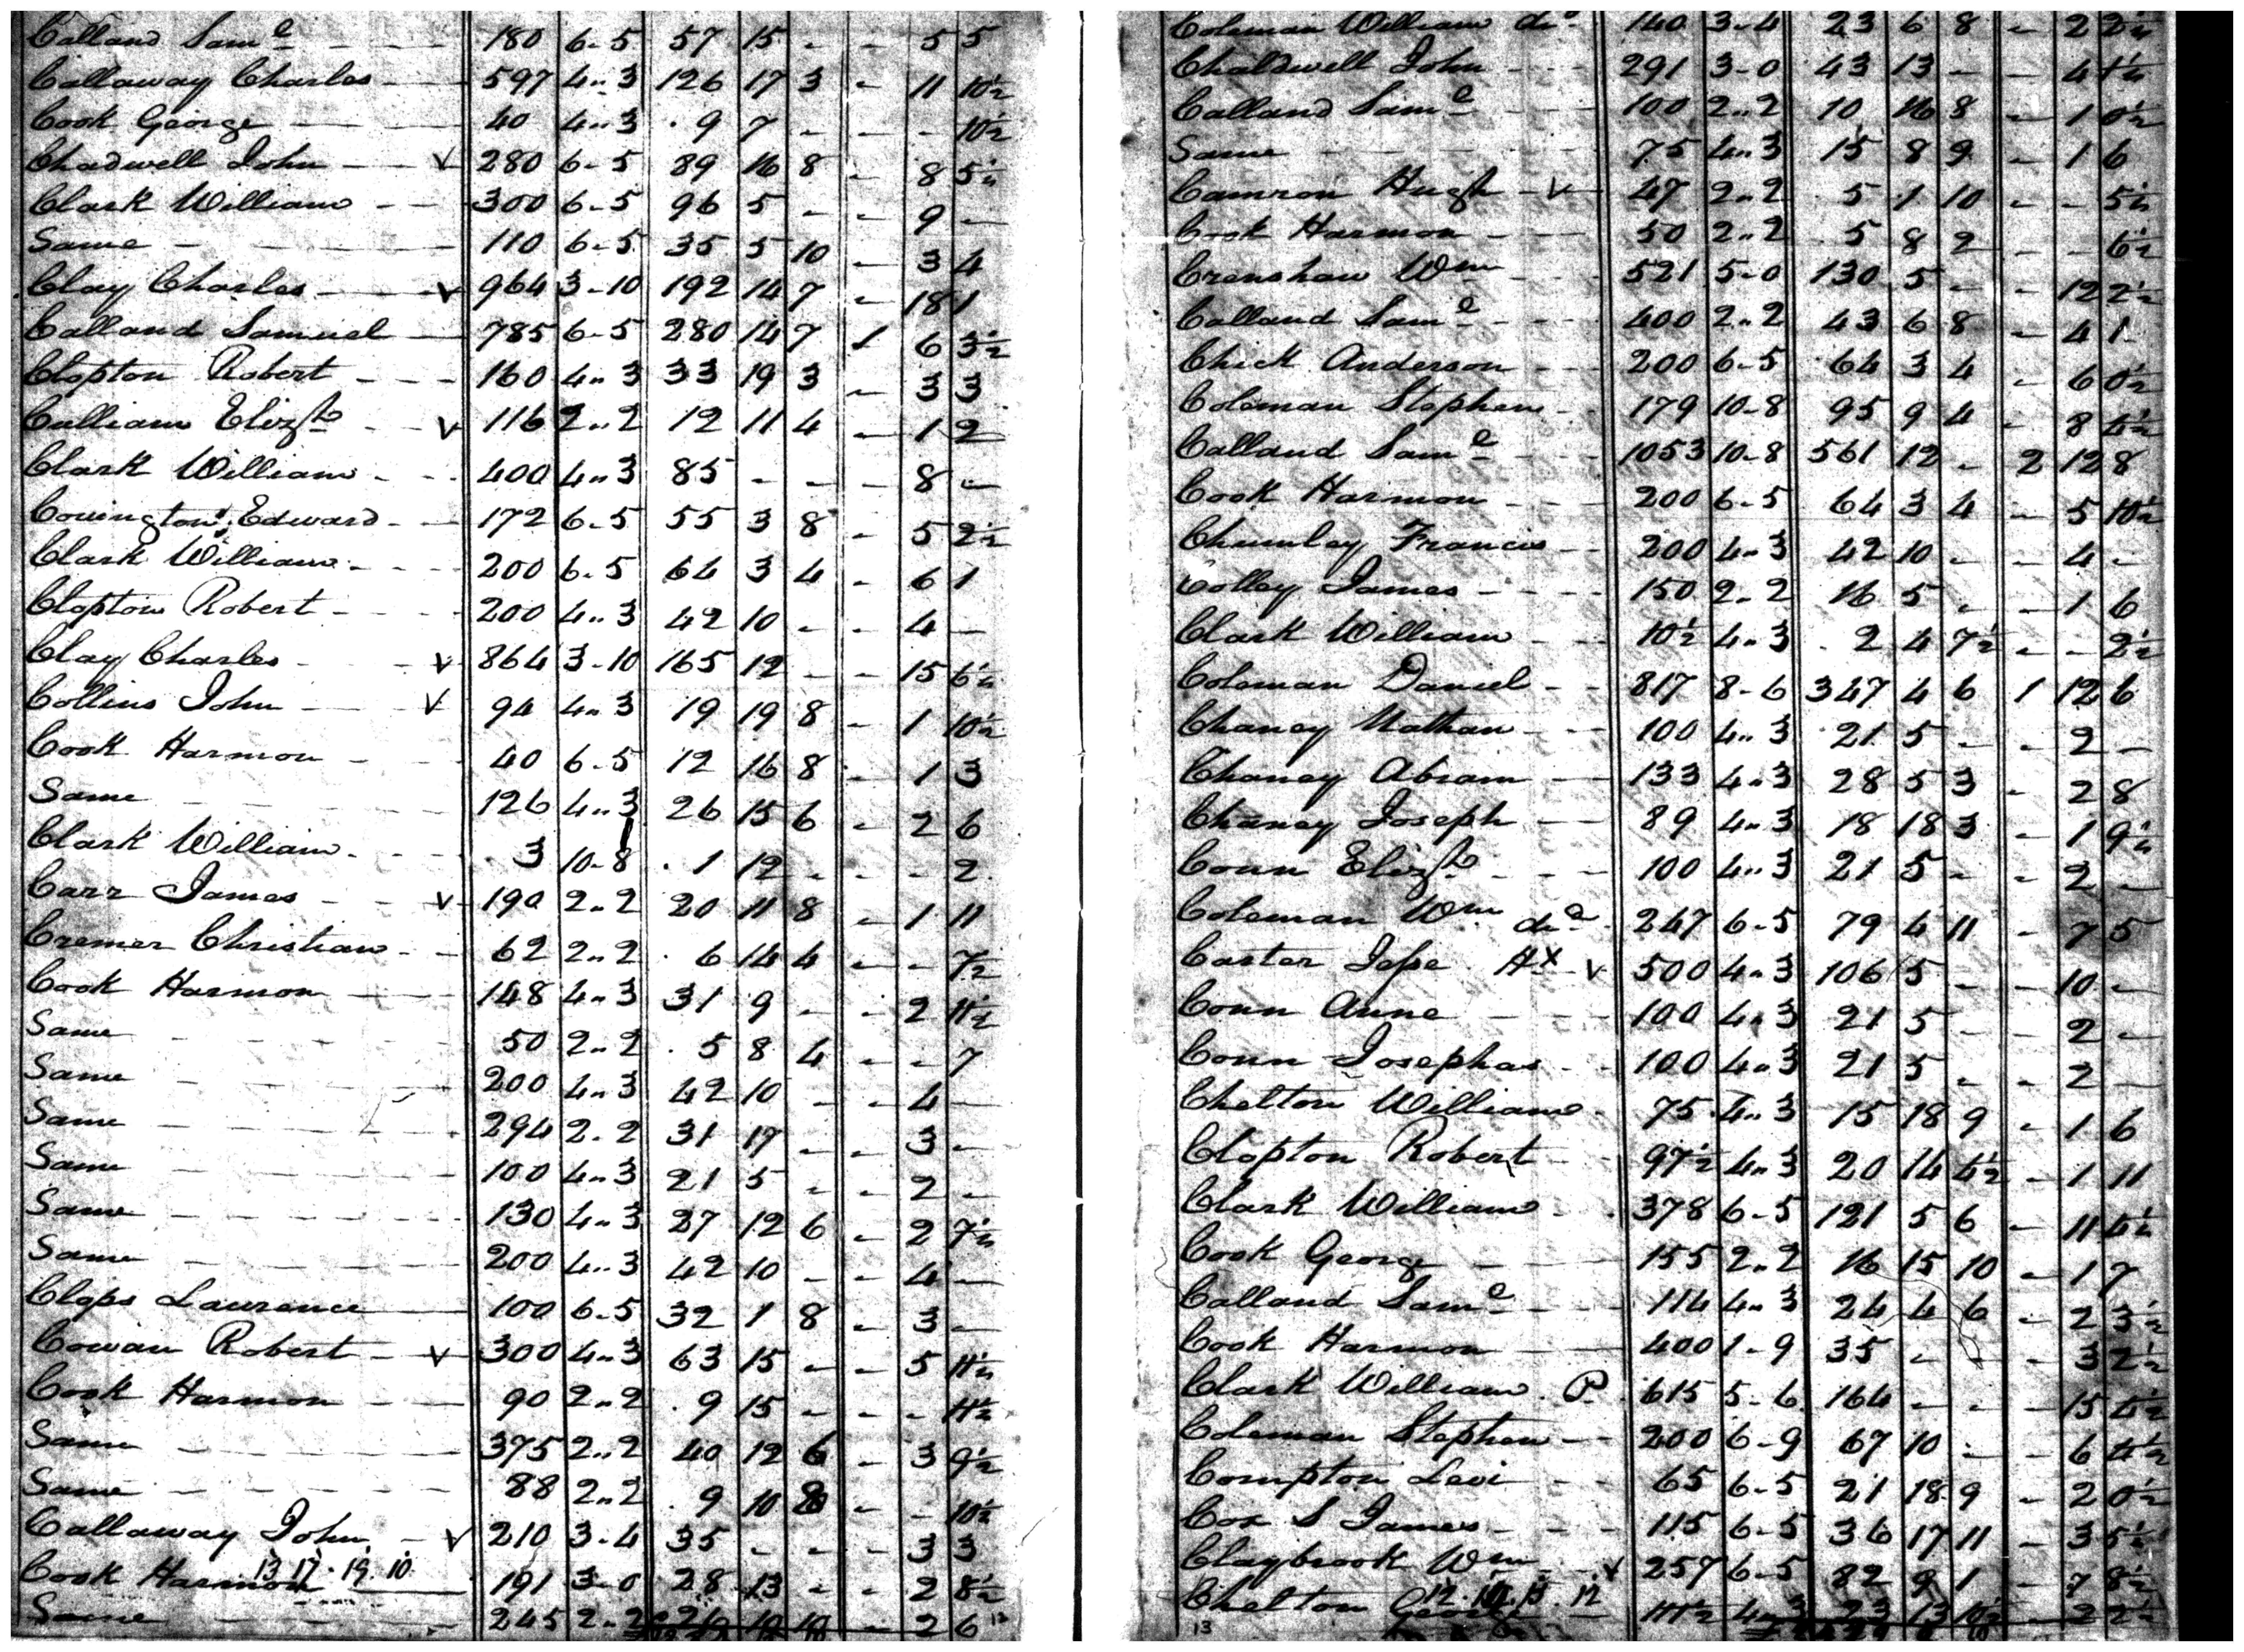 Calland Saml 180 6-5 57 15 - - 5 5
Callaway Charles 597 4"3 126 17 3 - 11 10½
Cook George 40 4"3 9 7 - - - 10½
Chadwell John V 280 6-5 89 16 8 - 8 5½
Clark William 300 6-5 96 5 - - 9 -
Same 110 6-5 35 5 10 - 3 4
Clay Charles V 964 3-10 192 14 7 - 18 1
Calland Samuel 785 6-5 280 14 7 1 6 3½
Clopton Robert 160 4"3 33 19 3 - 3 3
Calliam Elizth V 116 2"2 12 11 4 - 1 2
Clark William 400 4"3 85 - - - 8 -
Covington Edward 172 6-5 55 3 8 - 5 2½
Clark William 200 6-5 64 3 4 - 6 1
Clopton Robert 200 4"3 42 10 - - 4 -
Clay Charles V 864 3-10 165 12 - - 15 6½
Collins John V 94 4"3 19 19 8 - 1 10½
Cook Harmon 40 6-5 12 16 8 - 1 3
Same 126 4"3 26 15 6 - 2 6
Clark William 3 10-8 1 12 - - - 2
Carr James V 190 2"2 20 11 8 - 1 11
Cremer Christian 62 2"2 6 14 4 - - 7½
Cook Harmon 148 4"3 31 9 - - 2 11½
Same 50 2"2 5 8 4 - - 7
Same 200 4"3 42 10 - - 4 -
Same 294 2-2 31 17 - - 3 -
Same 100 4"3 21 5 - - 2 -
Same 130 4"3 27 12 6 - 2 7½
Same 200 4"3 42 10 - - 4 -
Clops Laurence 100 6-5 32 1 8 - 3 -
Cowan Robert V 300 4"3 63 15 - - 5 11½
Cook Harmon 90 2"2 9 15 - - - 11½
Same 375 2"2 40 12 6 - 3 9½
Same 88 2"2 9 10 8 - - 10½
Callaway John V 210 3-4 35 - - - 3 3
Cook Harmon 191 3-0 28 13 - - 2 8½
13 17 19 10
Same 245 2-2 26 10 10 - 2 6
Coleman William decd 140 3-4 23 6 8 - 2 2½
Chaldwell John 291 3-0 43 13 - - 4 1½
Calland Saml 100 2"2 10 16 8 - 1 0½
Same 75 4"3 15 8 9 - 1 6
Camron Hugh V 47 2"2 5 1 10 - - 5½
Cook Harmon 50 2"2 5 8 2 - - 6½
Crenshaw Wm 521 5-0 130 5 - - 12 2½
Calland Saml 400 2"2 43 6 8 - 4 1
Chick Anderson 200 6-5 64 3 4 - 6 0½
Coleman Stephen 179 10-8 95 9 4 - 8 4½
Calland Saml 1053 10-8 561 12 - 2 12 8
Cook Harmon 200 6-5 64 3 4 - 5 10½
Chumley Francis 200 4"3 42 10 - - 4 -
Colley James 150 2-2 16 5 - - 1 6
Clark William 10½ 4"3 2 4 7½ - - 2½
Coleman Daniel 817 8-6 347 4 6 1 12 6
Chaney Nathan 100 4"3 21 5 - - 2 -
Chaney Abram 133 4"3 28 5 3 - 2 8
Chaney Joseph 89 4"3 18 18 3 - 1 9½
Conn Elizth 100 4"3 21 5 - - 2 -
Coleman Wm decd 247 6-5 79 4 11 - 7 5
Carter Jesse Hx V 500 4"3 106 5 - - 10 -
Conn Anne 100 4"3 21 5 - - 2 -
Conn Josephas 100 4"3 21 5 - - 2 -
Chelton William 75 4"3 15 18 9 - 1 6
Clopton Robert 97½ 4"3 20 14 4½ - 1 11
Clark William 378 6-5 121 5 6 - 11 4½
Cook George 155 2"2 16 15 10 - 1 7
Calland Saml 114 4"3 24 4 6 - 2 3½
Cook Harmon 400 1-9 35 - - - 3 2½
Clark William P 615 5-6 164 - - - 15 4½
Coleman Stephen 200 6-9 67 10 - - 6 4½
Compton Levi 65 6-5 21 18 9 - 2 0½
Cox S James 115 6-5 36 17 11 - 3 5½
Claybrook Wm V 257 6-5 82 9 1 - 7 8½
Chelton George 111½ 4"3 23 13 10½ - 2 2½
13